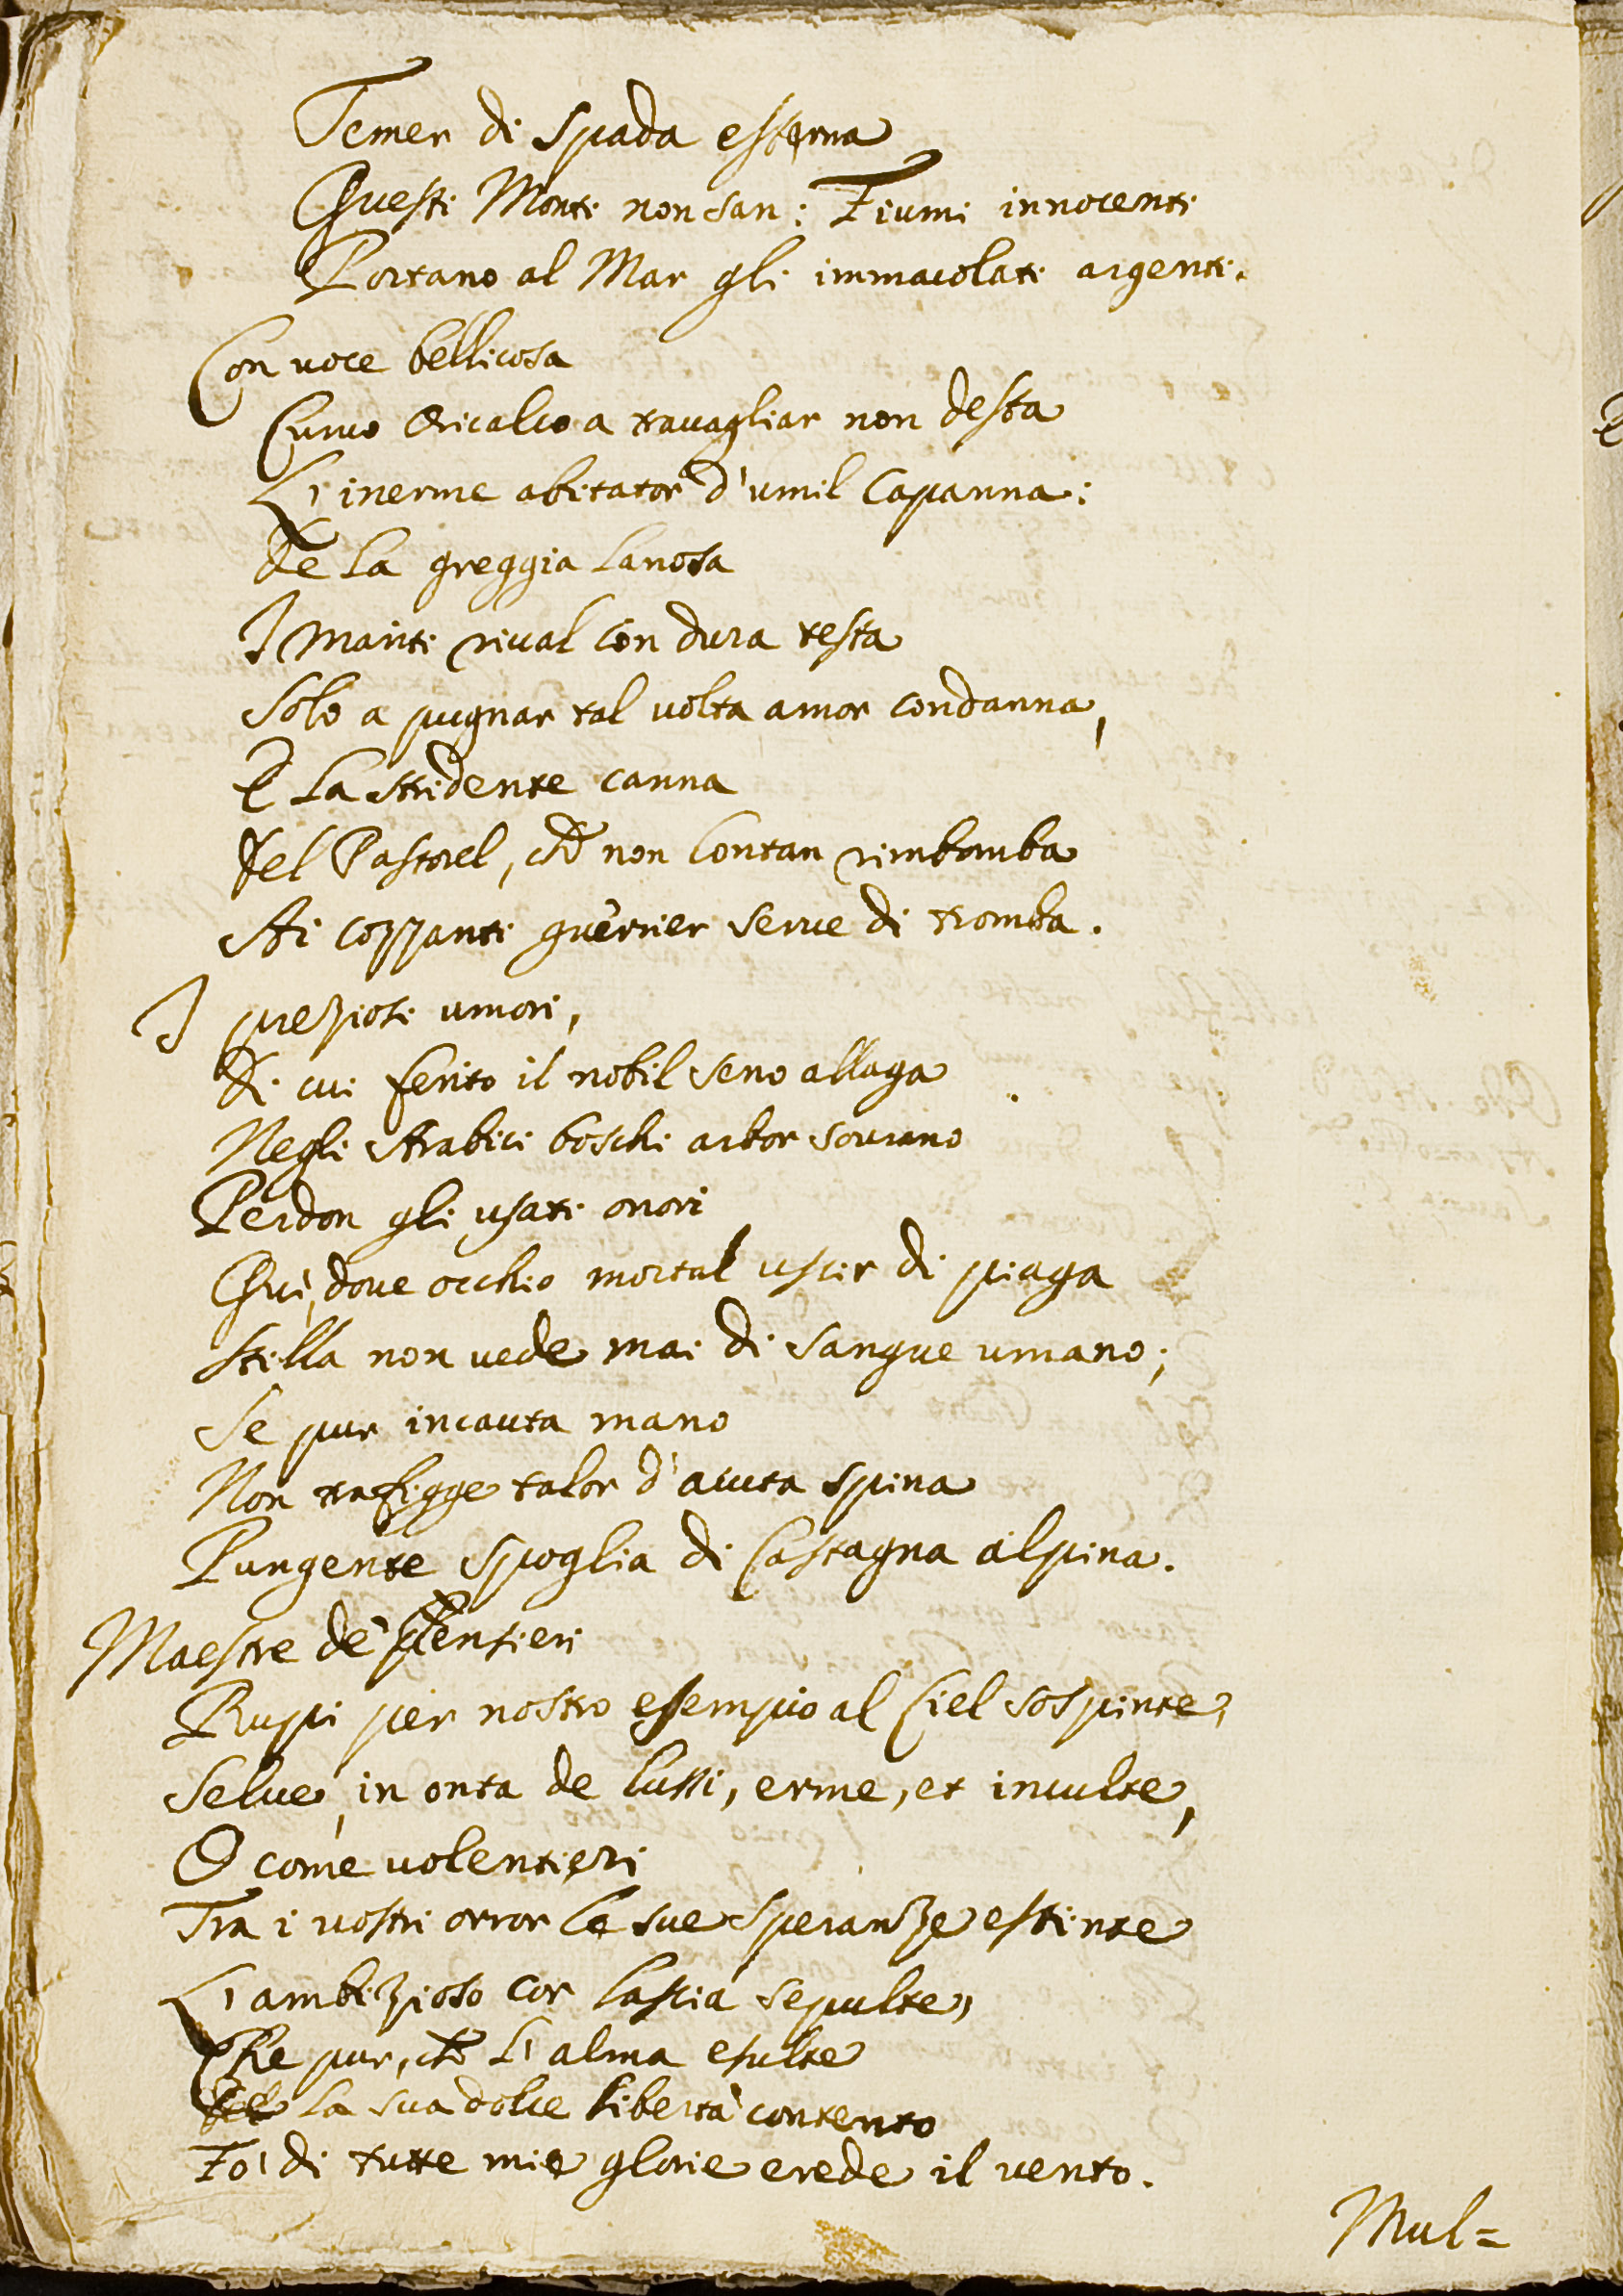 Temer di Spada esterna
Questi Monti non san: Fiumi innocenti
Portano al Mar gli immacolati argenti.
Con uoce bellicosa
Curuo Oricalco a trauagliar non desta
L'inerme abitator d'umil Capanna:
De la greggia lanosa
I Mariti riual con dura testa
Solo a pugnar tal uolta amor condanna,
E la stridente canna
Del Pastorel, che non lontan rimbomba
Ai cozzanti guerrier serue di tromba.
I preziosi umori,
Di cui ferito il nobil seno allaga
Negli Arabici boschi arbor sourano
Perdon gli usati onori
Qui, doue occhio mortal uscir di piaga
Stilla non uede mai di sangue umano;
Se pur incauta mano
Non trafigge talor d'acuta spina
Pungente spoglia di Castagna alpina.
Maestre de' Pensieri
Rupi per nostro esempio al Ciel sospinte,
Selue, in onta de lussi, erme, et inculte,
O come uolentieri
Tra i uostri orror le sue speranze estinte
L'ambizioso cor lascia sepulte,
Che pur, che l'alma esulte
la sua dolce libertà contento
Fo' di tutte mie glorie erede il uento.
Mul=